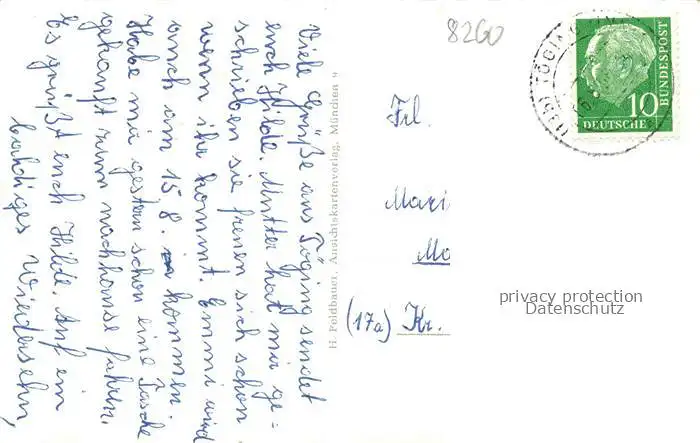 Viele Grüße aus Töging sendet
euch Hilde. Mutter hat mir ge-
schrieben sie freuen sich schon
wenn ihr kommt. Emmi wird
auch am 15.8. kommen.
Habe mir gestern schon eine Tasche
gekauft zum nachhause fahren.
Es grüßt euch Hilde. Auf ein
baldiges Wiedersehn,
H. Poldbauer, Ansichtskartenverlag, München 9
8260
Frl.
Mari
Mo
(17a) Kr.
10
DEUTSCHE
BUNDESPOST
(13b) TÖGING
privacy protection
Datenschutz